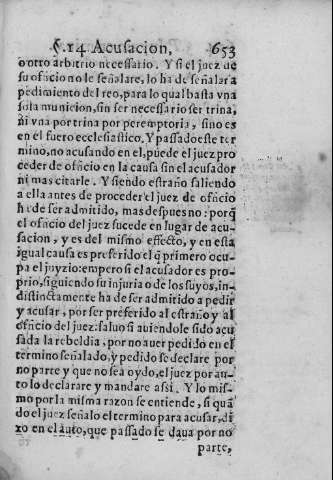 §.14 Acusacion, 653
o otro arbitrio necessario. Y si el juez de
su oficio no le señalare, lo ha de señalar a
pedimiento del reo, para lo qual basta vna
sola municion, sin ser necessario ser trina,
ni vna por trina por peremptoria, sino es
en el fuero ecclesiastico. Y passado este ter
mino, no acusando en el, puede el juez pro
ceder de oficio en la causa sin el acusador
ni mas citarle. Y siendo estraño saliendo
a ella antes de proceder el juez de oficio
ha de ser admitido, mas despues no: porq̃
el oficio del juez sucede en lugar de acu-
sacion, y es del mismo effecto, y en esta
igual causa es preferido el q̃ primero ocu-
pa el juyzio: empero si el acusador es pro-
prio, siguiendo su injuria o de los suyos, in-
distinctamente ha de ser admitido a pedir
y acusar, por ser preferido al estraño y al
oficio del juez: saluo si auiendole sido acu
sada la rebeldia, por no auer pedido en el
termino señalado, y pedido se declare por
no parte y que no sea oydo, el juez por au-
to lo declarare y mandare assi. Y lo mis-
mo por la misma razon se entiende, si quã
do el juez señalo el termino para acusar, di
xo en el auto, que passado se daua por no
parte,